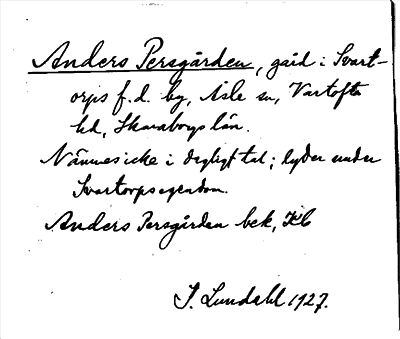 Anders Persgården, gård i Svart-
orps f.d. by, Åsle sn, Vartofta
hd, Skaraborgs län.
Nämnes icke i dagligt tal; lyder under
Svartorpsegendom.
Anders Persgården bek, Kb
S. Lundahl 1927.